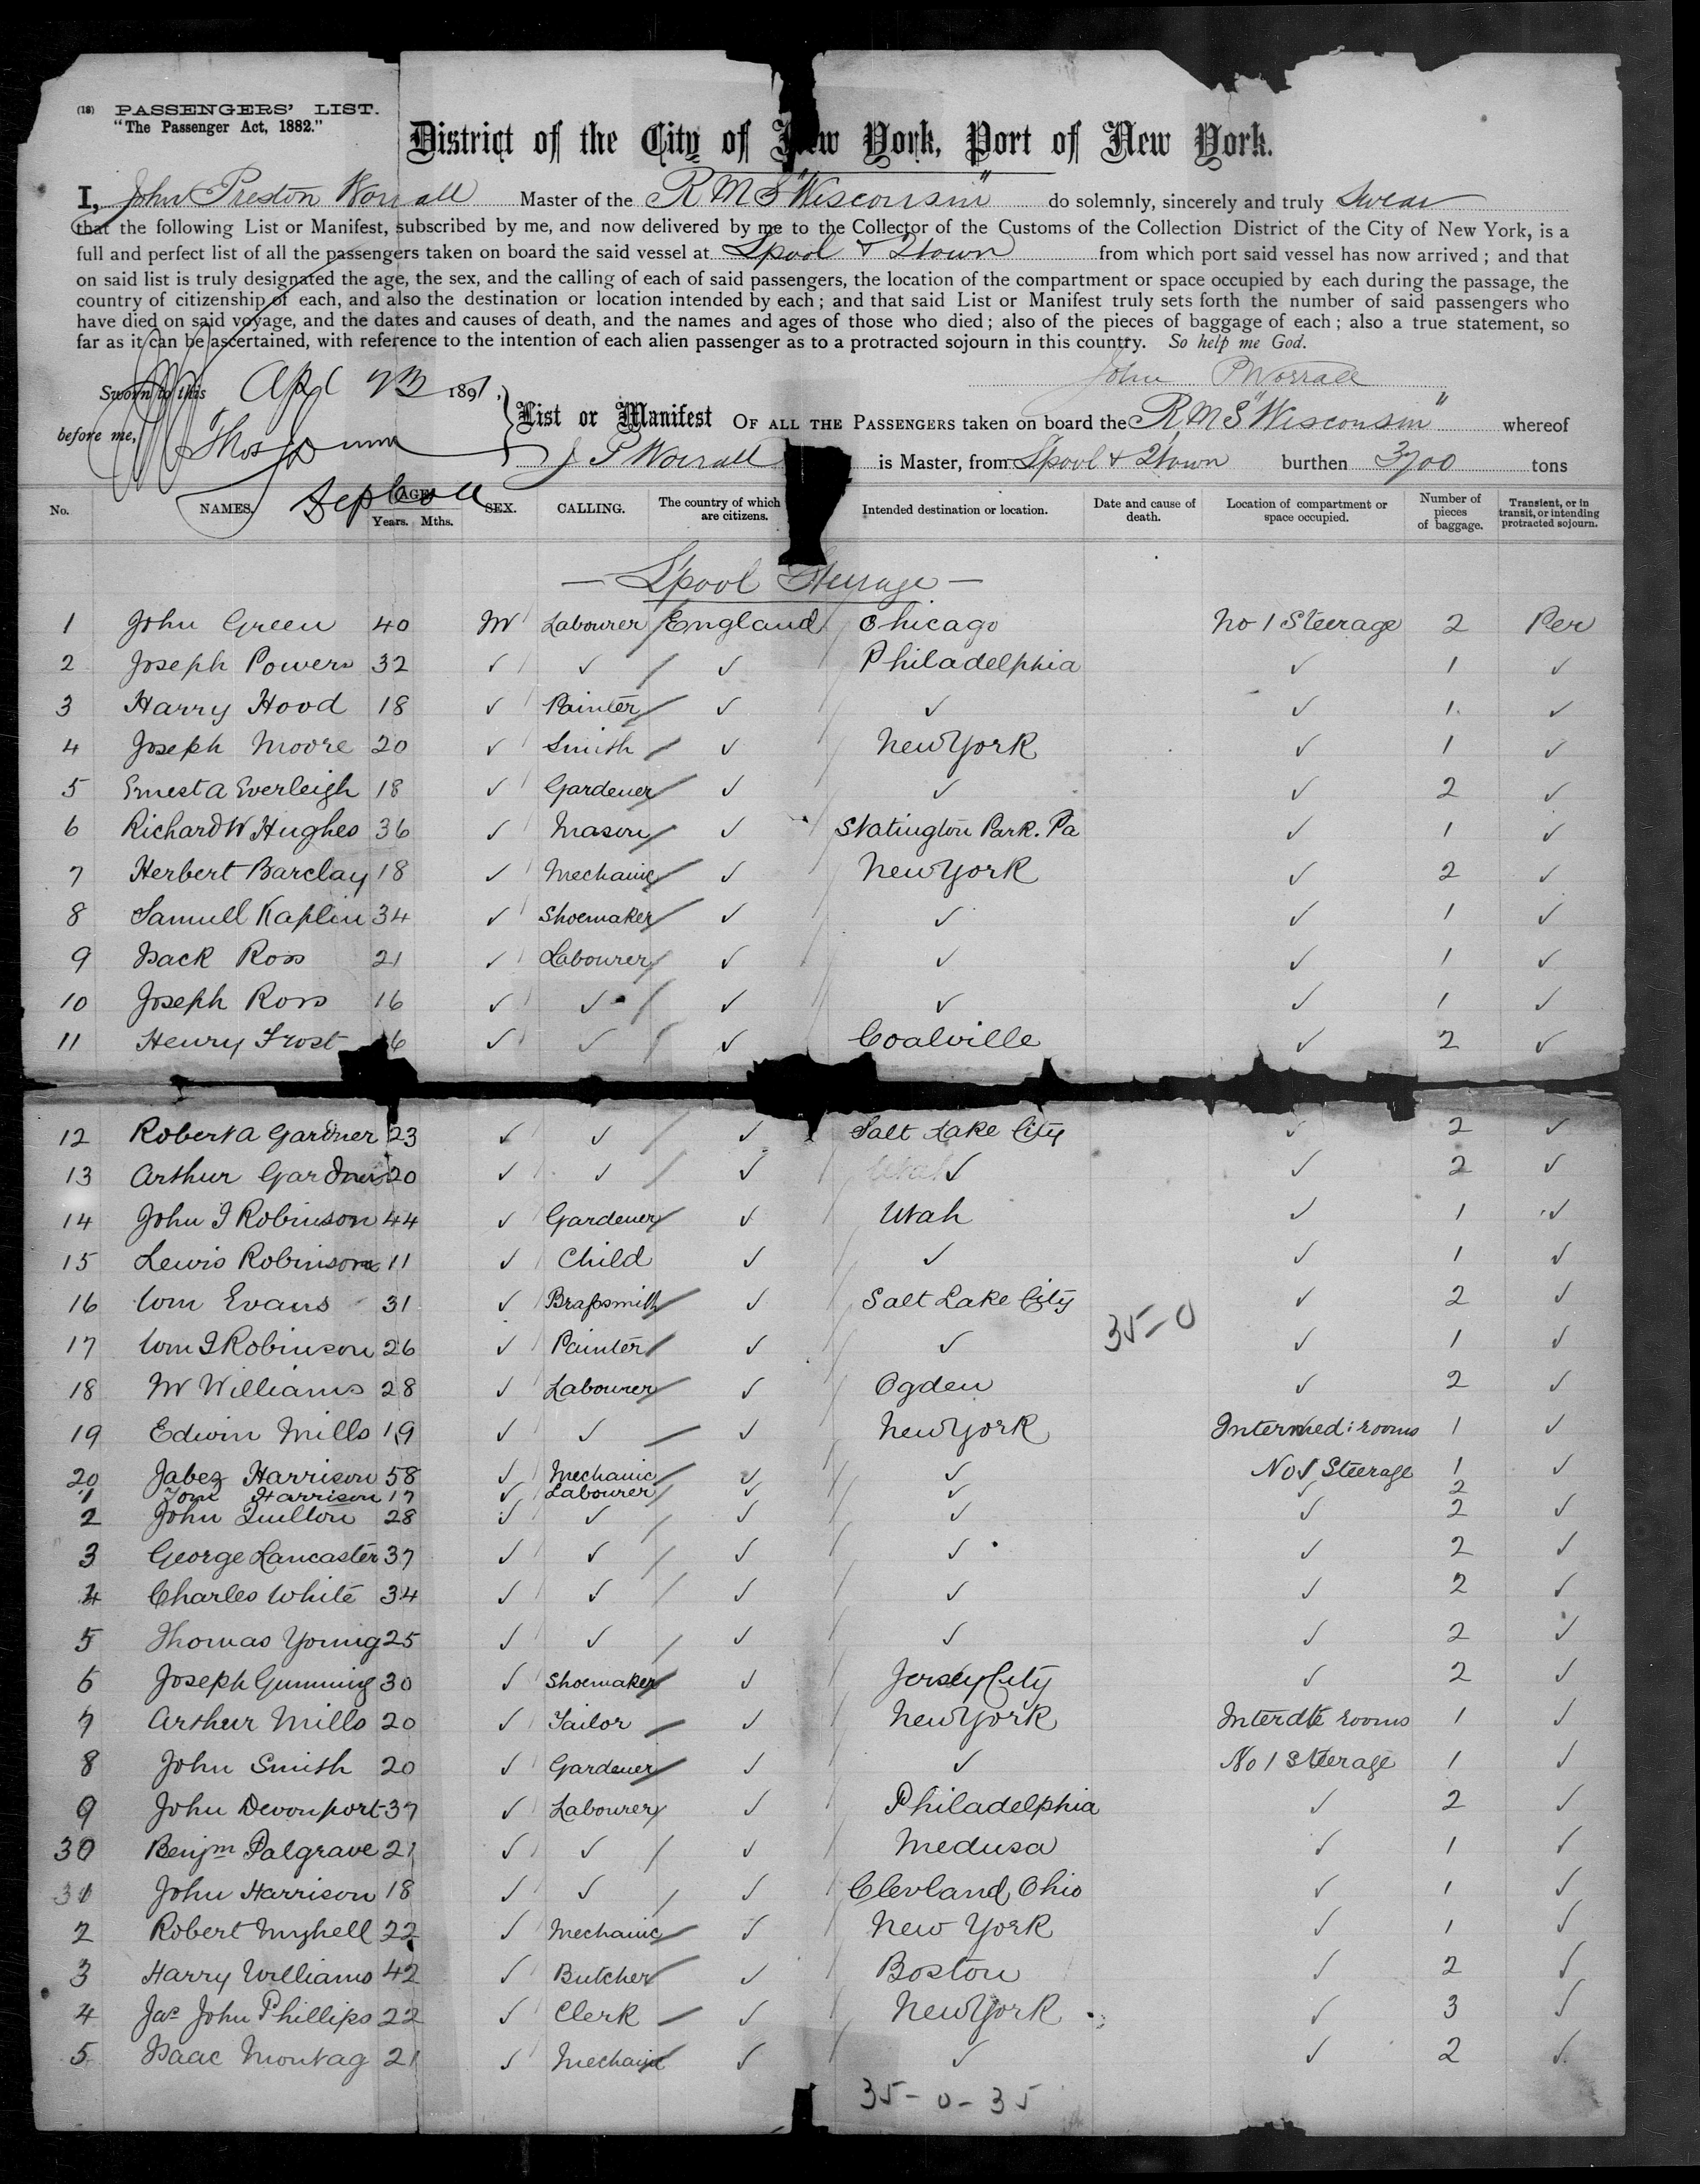 (18) PASSENGERS' LIST.
"The Passenger Act, 1882."
District of the City of New York, Port of New York.
I, John Preston Worrall Master of the R.M.S "Wisconsin" do solemnly, sincerely and truly Swear
that the following List or Manifest, subscribed by me, and now delivered by me to the Collector of the Customs of the Collection District of the City of New York, is a
full and perfect list of all the passengers taken on board the said vessel at L'pool & Q'town from which port said vessel has now arrived; and that
on said list is truly designated the age, the sex, and the calling of each of said passengers, the location of the compartment or space occupied by each during the passage, the
country of citizenship of each, and also the destination or location intended by each; and that said List or Manifest truly sets forth the number of said passengers who
have died on said voyage, and the dates and causes of death, and the names and ages of those who died; also of the pieces of baggage of each; also a true statement, so
far as it can be ascertained, with reference to the intention of each alien passenger as to a protracted sojourn in this country. So help me God.
John P Worrall
Sworn to this Apl 23 1891,
before me, Thos Dunn
List or Manifest OF ALL THE PASSENGERS taken on board the R.M.S "Wisconsin" whereof
J P Worrall is Master, from L'pool & Q'town burthen 3700 tons
No. NAMES. AGE Years. Mths. SEX. CALLING. The country of which are citizens. Intended destination or location. Date and cause of death. Location of compartment or space occupied. Number of pieces of baggage. Transient, or in transit, or intending protracted sojourn.
— L'pool Steerage —
1 John Green 40 M Labourer England Chicago No 1 Steerage 2 Per
2 Joseph Powers 32 ✓ ✓ ✓ Philadelphia ✓ 1 ✓
3 Harry Hood 18 ✓ Painter ✓ ✓ ✓ 1 ✓
4 Joseph Moore 20 ✓ Smith ✓ New York ✓ 1 ✓
5 Ernest A Everleigh 18 ✓ Gardener ✓ ✓ ✓ 2 ✓
6 Richard W Hughes 36 ✓ Mason ✓ Slatington Park. Pa ✓ 1 ✓
7 Herbert Barclay 18 ✓ Mechanic ✓ New York ✓ 2 ✓
8 Samuell Kaplin 34 ✓ Shoemaker ✓ ✓ ✓ 1 ✓
9 Isack Ross 21 ✓ Labourer ✓ ✓ ✓ 1 ✓
10 Joseph Ross 16 ✓ ✓ ✓ ✓ ✓ 1 ✓
11 Henry Frost 6 ✓ ✓ ✓ Coalville ✓ 2 ✓
12 Robert A Gardner 23 ✓ ✓ ✓ Salt Lake City ✓ 2 ✓
13 Arthur Gardner 20 ✓ ✓ ✓ Utah ✓ ✓ 2 ✓
14 John J Robinson 44 ✓ Gardener ✓ Utah ✓ 1 ✓
15 Lewis Robinson 11 ✓ Child ✓ ✓ ✓ 1 ✓
16 Wm Evans 31 ✓ Brassmith ✓ Salt Lake City ✓ 2 ✓
35-0
17 Wm J Robinson 26 ✓ Painter ✓ ✓ ✓ 1 ✓
18 W Williams 28 ✓ Labourer ✓ Ogden ✓ 2 ✓
19 Edwin Mills 19 ✓ ✓ ✓ New York Intermed: rooms 1 ✓
20 Jabez Harrison 58 ✓ Mechanic ✓ ✓ No 1 Steerage 1 ✓
1 Tom Harrison 17 ✓ Labourer ✓ ✓ ✓ 2
2 John Quilton 28 ✓ ✓ ✓ ✓ ✓ 2 ✓
3 George Lancaster 37 ✓ ✓ ✓ ✓ ✓ 2 ✓
4 Charles White 34 ✓ ✓ ✓ ✓ ✓ 2 ✓
5 Thomas Young 25 ✓ ✓ ✓ ✓ ✓ 2 ✓
6 Joseph Gumming 30 ✓ Shoemaker ✓ Jersey City ✓ 2 ✓
7 Arthur Mills 20 ✓ Tailor ✓ New York Interdte rooms 1 ✓
8 John Smith 20 ✓ Gardener ✓ ✓ No 1 Steerage 1 ✓
9 John Devonport 37 ✓ Labourer ✓ Philadelphia ✓ 2 ✓
30 Benjm Palgrave 21 ✓ ✓ ✓ Medusa ✓ 1 ✓
31 John Harrison 18 ✓ ✓ ✓ Clevland, Ohio ✓ 1 ✓
2 Robert Myhell 22 ✓ Mechanic ✓ New York ✓ 1 ✓
3 Harry Williams 42 ✓ Butcher ✓ Boston ✓ 2 ✓
4 Jas John Phillips 22 ✓ Clerk ✓ New York ✓ 3 ✓
5 Isaac Montag 21 ✓ Mechanic ✓ ✓ ✓ 2 ✓
35-0-35